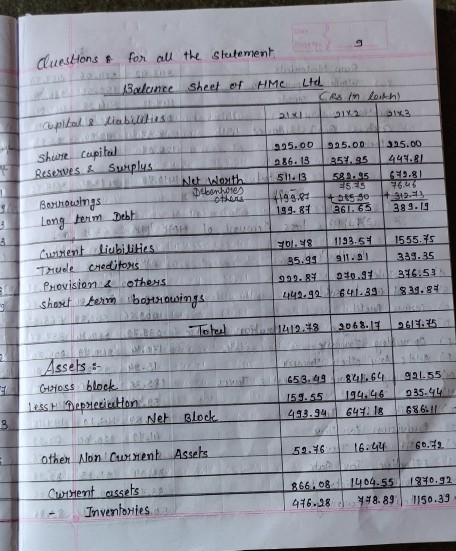 9
Questions for all the statement.
Balance Sheet of HMC Ltd
(Rs in lakh)
Capital & liabilities 21x1 21x2 21x3
Share capital 225.00 225.00 225.00
Reserves & Surplus 286.13 357.95 447.81
Net Worth 511.13 582.95 672.81
Debentures - 75.75 76.46
Borrowings others +199.87 + 285.90 + 312.73
Long term Debt 199.87 361.65 389.19
Current liabilities 701.78 1123.57 1555.75
Trade creditors 35.99 211.21 339.35
Provision & others 222.87 270.97 376.53
Short term borrowings 442.92 641.39 839.87
Total 1412.78 2068.17 2617.75
Assets :-
Gross block 653.49 841.64 921.55
Less : Depreciation 159.55 194.46 235.44
Net Block 493.94 647.18 686.11
Other Non Current Assets 52.76 16.44 60.72
Current assets 866.08 1404.55 1870.92
- Inventories 476.28 778.89 1150.39